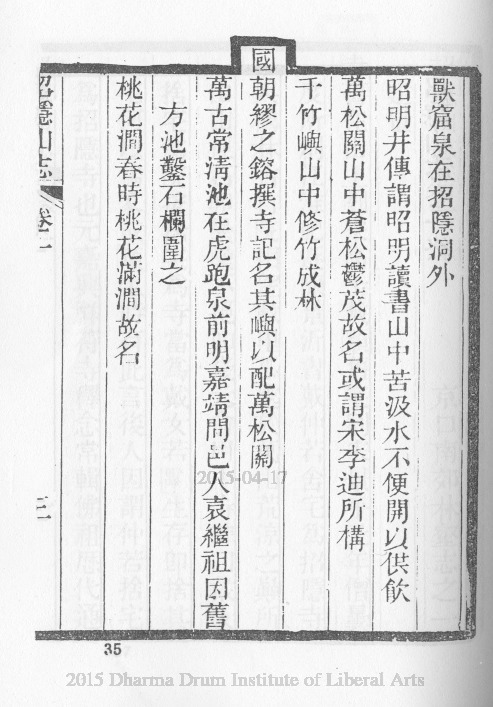 獸窟泉在招隱洞外
昭明井傳謂昭明讀書山中苦汲水不便開以供飲
萬松關山中蒼松鬱茂故名或謂宋李迪所構
千竹嶼山中修竹成林
國朝繆之鎔撰寺記名其嶼以配萬松關
萬古常清池在虎跑泉前明嘉靖間邑人袁繼祖因舊
方池鑿石欄圍之
桃花澗春時桃花滿澗故名
招隱山志 卷二
35
2015-04-17
2015 Dharma Drum Institute of Liberal Arts